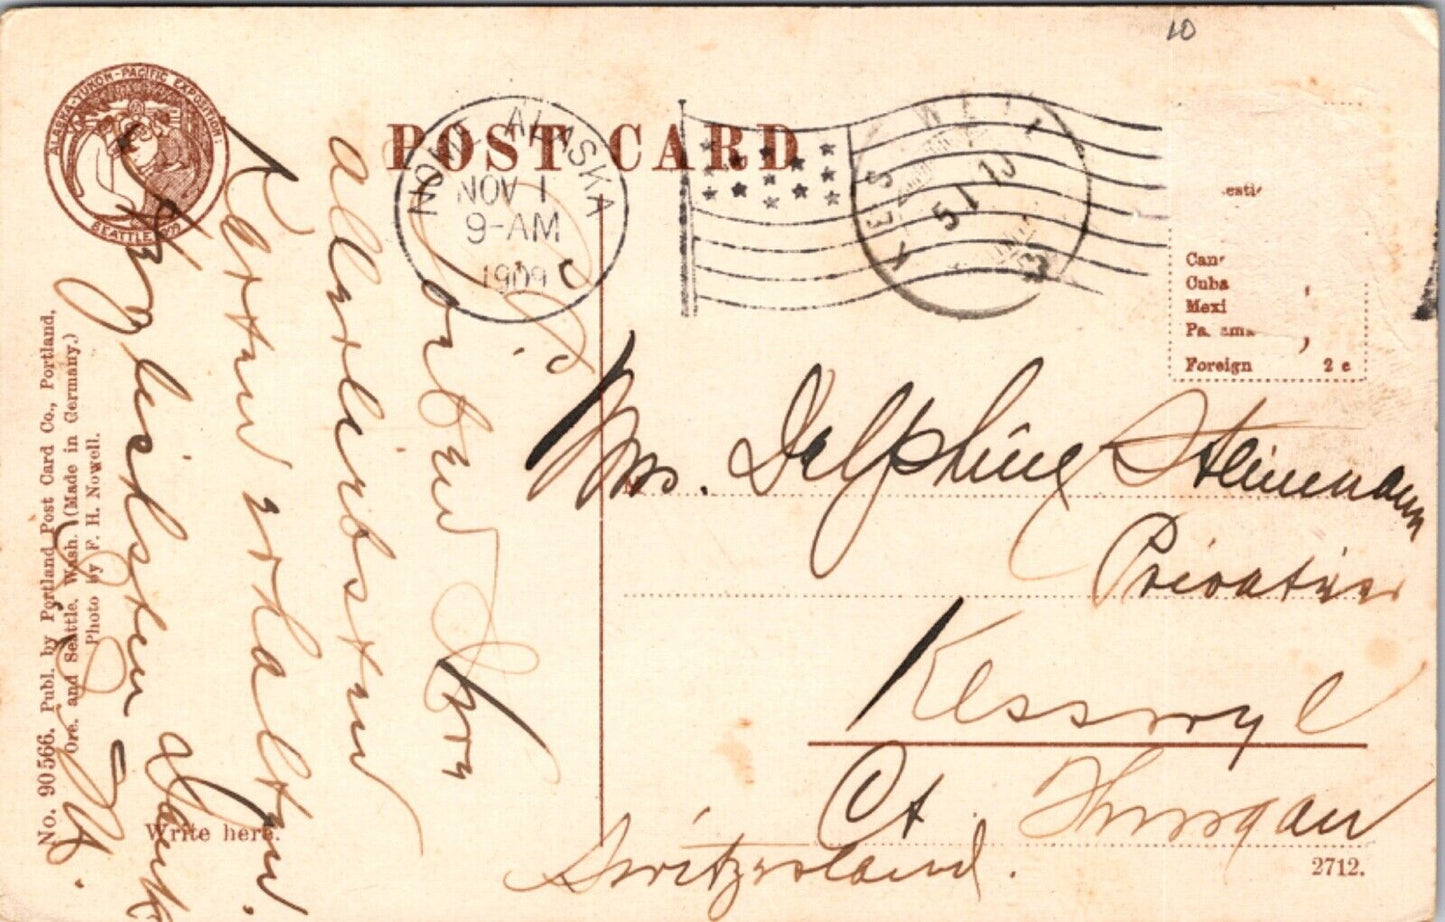 10
ALASKA-YUKON-PACIFIC EXPOSITION
SEATTLE 1909
POST CARD
ALASKA
NOV 1
9-AM
1909
5 I 10
Cuba
Mexi
Foreign 2 c
Mrs. Delphine Steinemann
Privatiere
Kesswyl
Ct. Thurgau
Switzerland.
2712.
No. 90566. Publ. by Portland Post Card Co., Portland,
Ore. and Seattle, Wash. (Made in Germany.)
Photo by F. H. Nowell.
Write here.
allerliebsten
Karten erhalten.
Dank